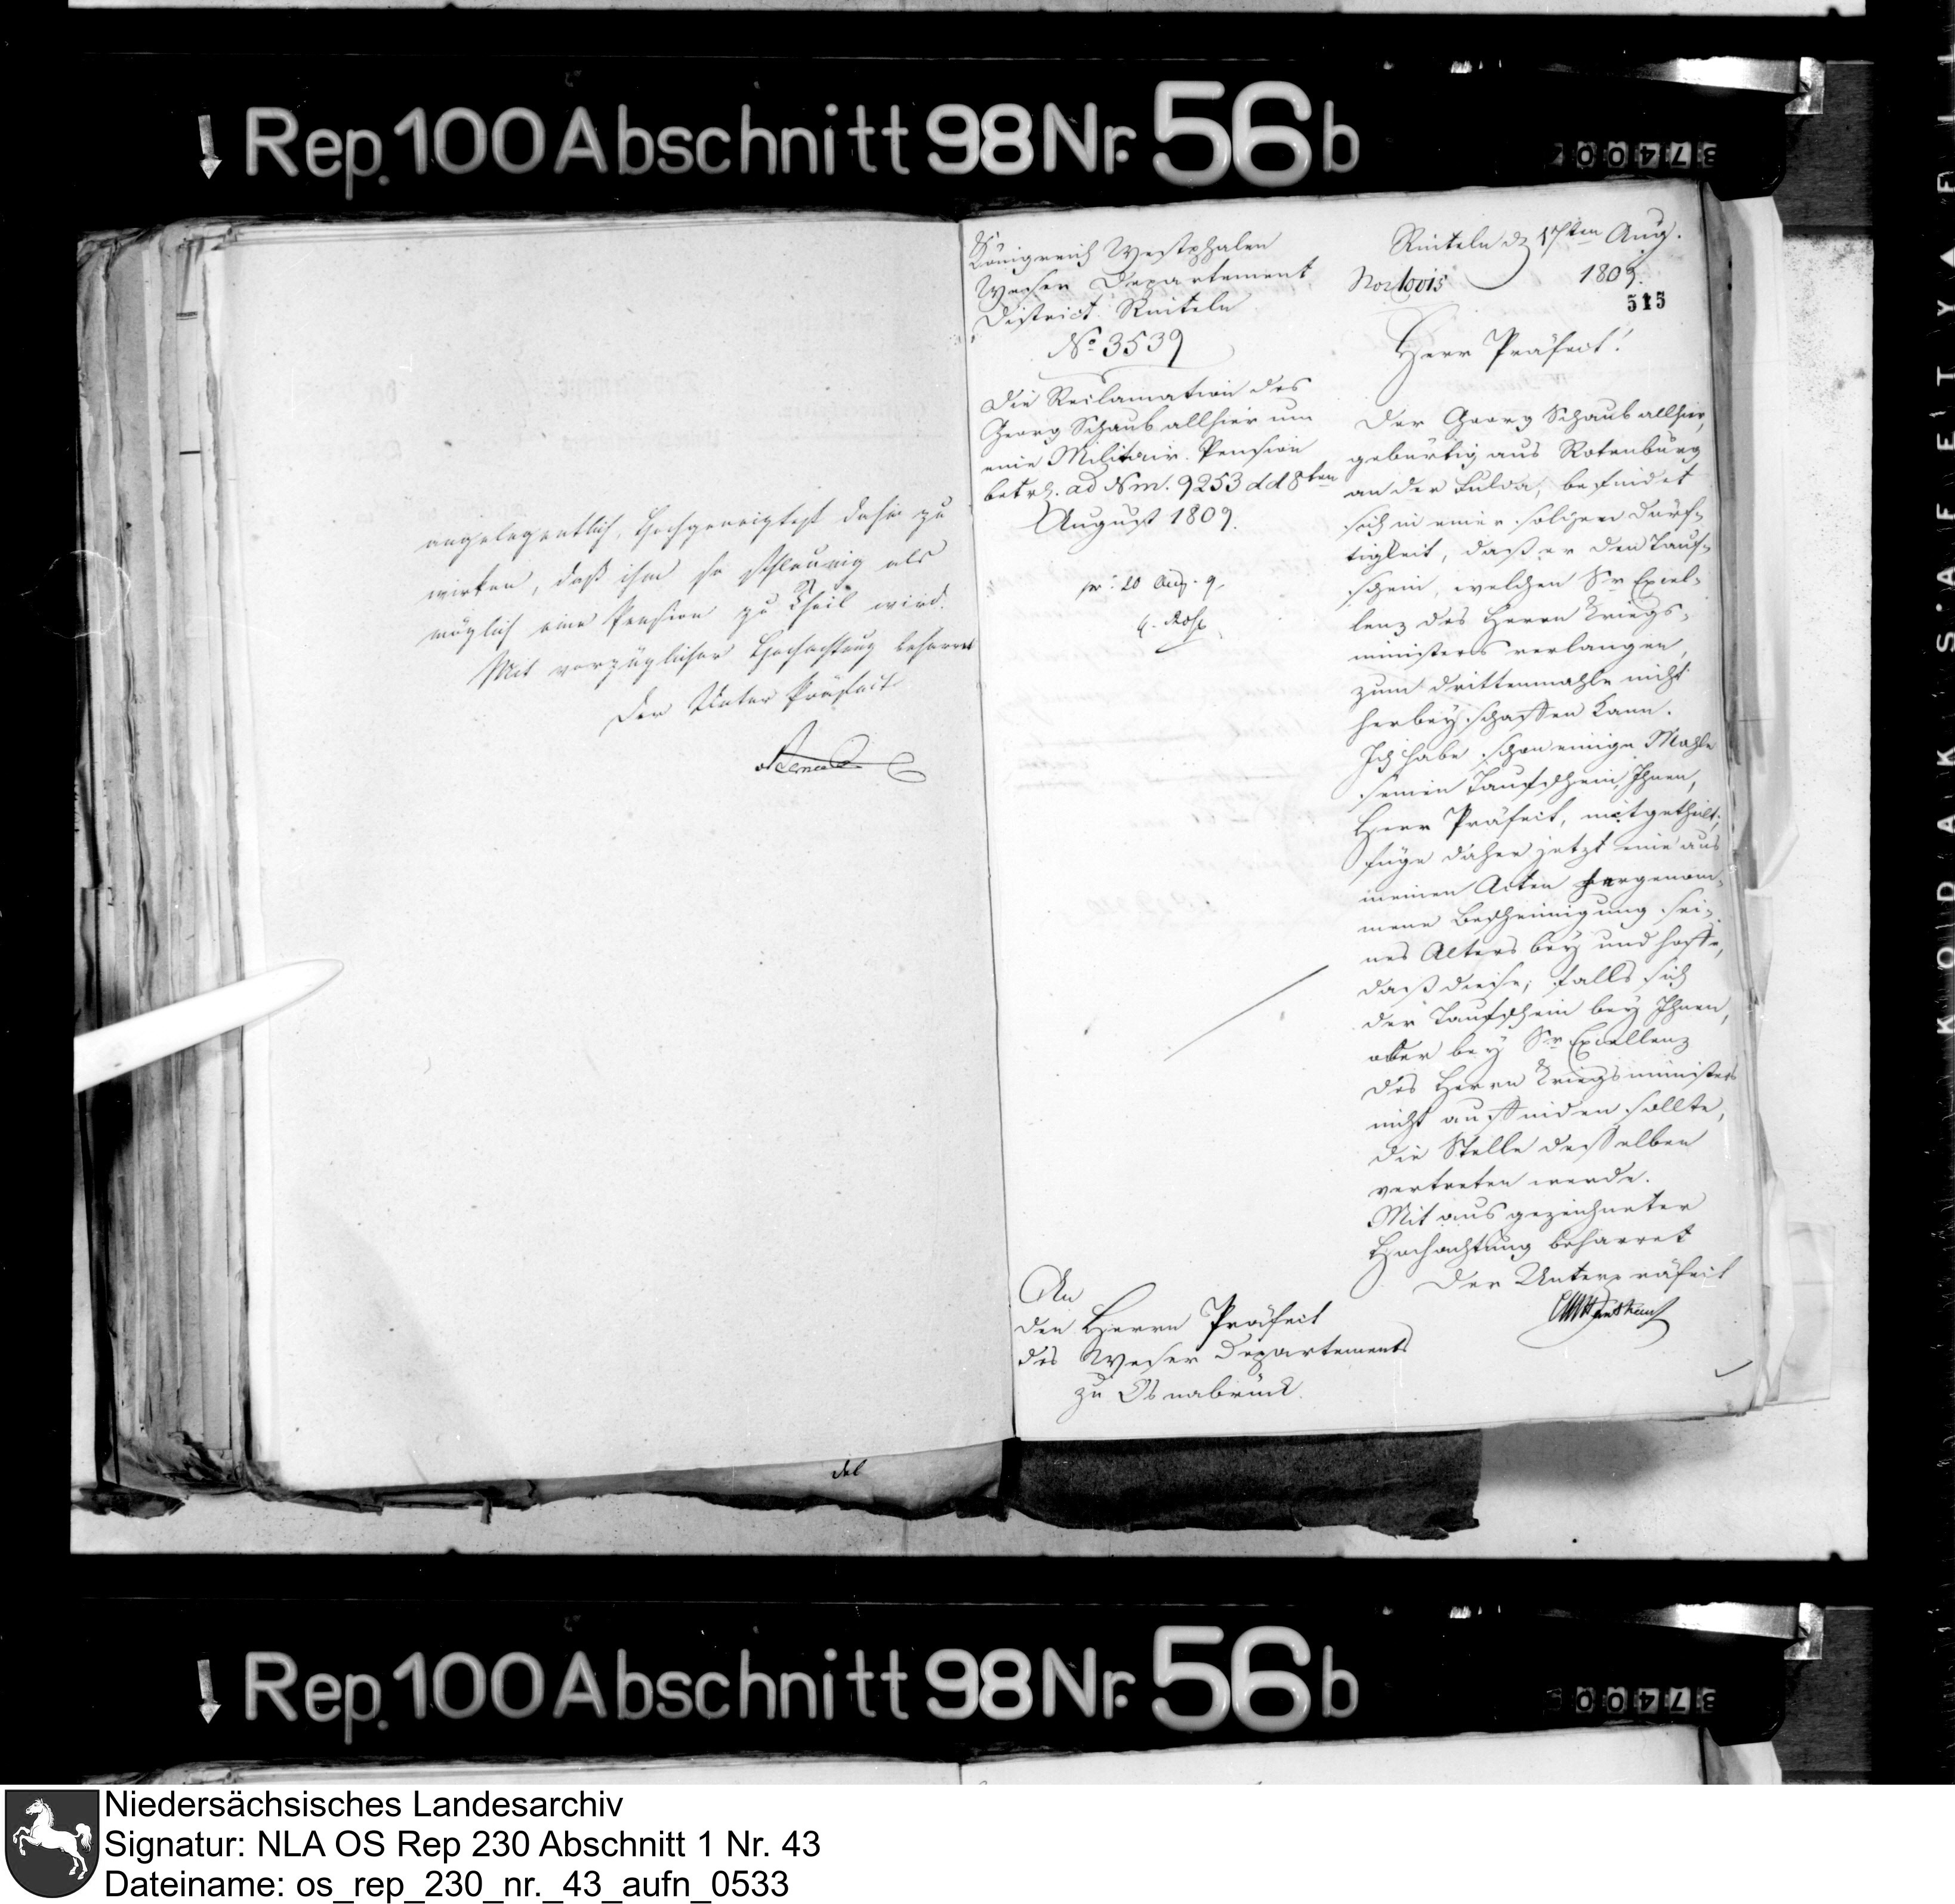 Rep. 100 Abschnitt 98 Nr. 56b
angelegentlich, hochgeneigtest dahin zu
wirken, daß ihm so schleunig als
möglich eine Pension zu Theil wird.
Mit vorzüglicher Hochachtung beharret
Der Unter Präfect
del
Königreich Westphalen
Weser Departement
District Rinteln
No. 3539
Die Reclamation des
Georg Schaub allhier um
eine Militair-Pension
betrf. ad Nm. 9253 dd 8ten
August 1809.
pr: 20 Aug. 9
Rinteln d 17ten Aug.
1809.
515
Herr Präfect!
Der Georg Schaub allhier,
gebürtig aus Rotenburg
an der Fulda, befindet
sich in einer solchen Dürf-
tigkeit, daß er den Tauf-
schein, welchen Sr Excel-
lenz des Herrn Kriegs-
ministers verlangen,
zum drittenmahle nicht
herbey schaffen kann.
Ich habe schon einige Mahle
seinen Taufschein, Ihnen,
Herr Präfect, mitgetheilt;
füge daher jetzt eine aus
meinen Acten hergenom-
mene Bescheinigung sei-
nes Alters bey und hoffe,
daß diese, falls sich
der Taufschein bey Ihnen,
oder bey Sr Excellenz
des Herrn Kriegsministers
nicht auffinden sollte,
die Stelle desselben
vertreten werde.
Mit ausgezeichneter
Hochachtung beharret
Der Unterpräfect
An
den Herrn Präfect
des Weser Departements
zu Osnabrück.
Rep. 100 Abschnitt 98 Nr. 56b
KODAK SAFETY
Niedersächsisches Landesarchiv
Signatur: NLA OS Rep 230 Abschnitt 1 Nr. 43
Dateiname: os_rep_230_nr._43_aufn_0533